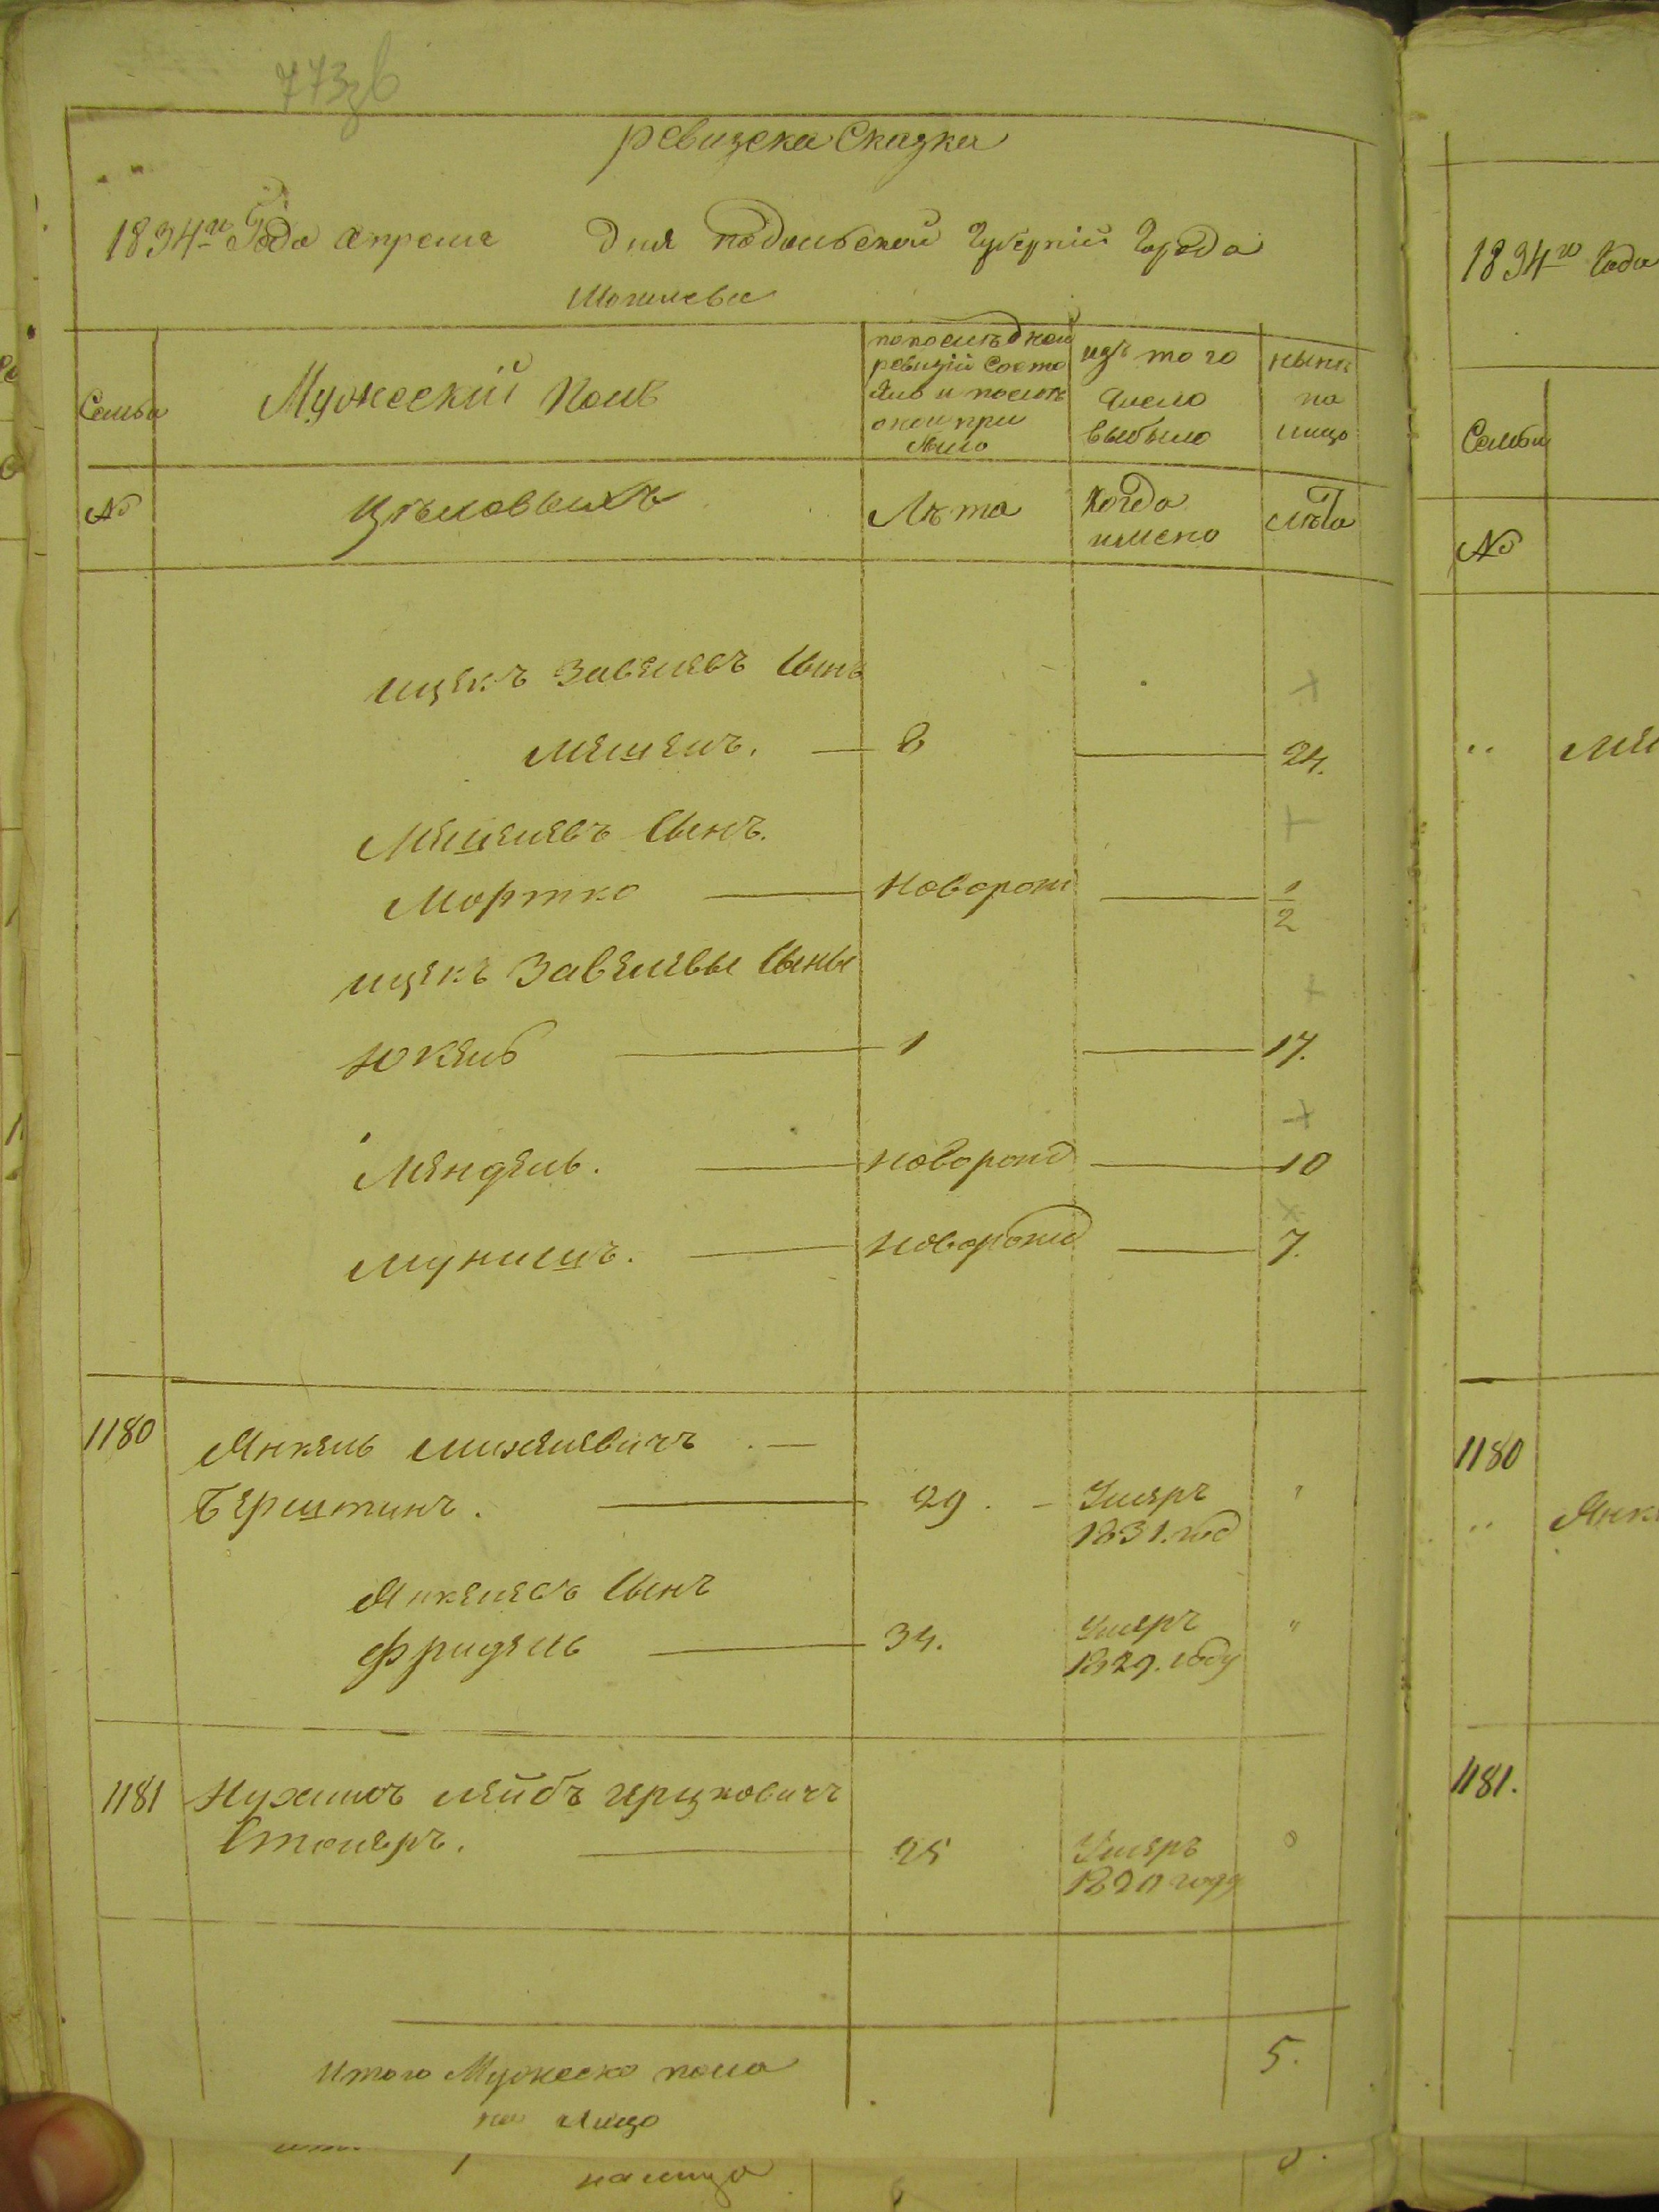 773зв
ревизска Сказка
1834го Года апреля дня подольской Губернии Города
Могилева
Семьи
Мужеский Полъ
попослѣдней
ревизіи состо
яло и послѣ
оной при
было
изъ того
число
выбыло
нынѣ
на
лицо
№
Лѣта
Когда
имено
лѣта
ицекъ Завелевъ Сынъ
мешель. — 8 — 24.
Мешелевъ Сынъ.
Мортко — Новорож — 1/2
ицекъ Завелевы Сыны
Юкель — 1 — 17.
Мендель. — новорожд — 10
мунишъ. — новорожд — 7.
1180 Янкель михелевичъ . —
Берштинъ. — 29. — Умеръ
1831. год
Янкелевъ Сынъ
Фридель — 34. Умеръ
1829. году
1181 Нухимъ лейбъ герцковичъ
Столеръ. — 25 Умеръ
1820 году
Итого Мужеско пола 5.
на лицо
на лицо
1834го Года
Семьи
№
1180
1181.